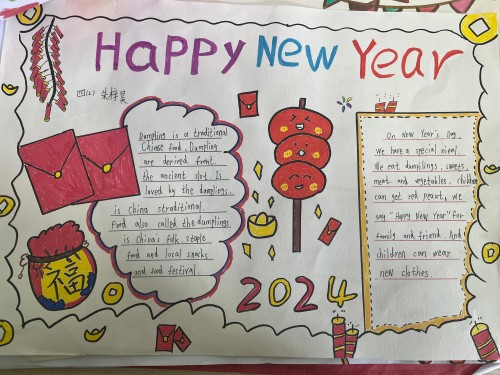 Happy New Year
四(2) 朱梓昊
Dumpling is a traditional
Chinese food. Dumpling
are derived from
the ancient slot. Is
loved by the dumplings.
is china straditional.
Food also called the dumplings
is China's folk staple
food and local snacks
and food festival.
On New Year's Day.
We have a special meal.
We eat dumplings, sweets,
meat and vegetables. children
can get red packet, we
say "Happy New Year" for
family and friend. And
children can wear
new clothes.
福
2024